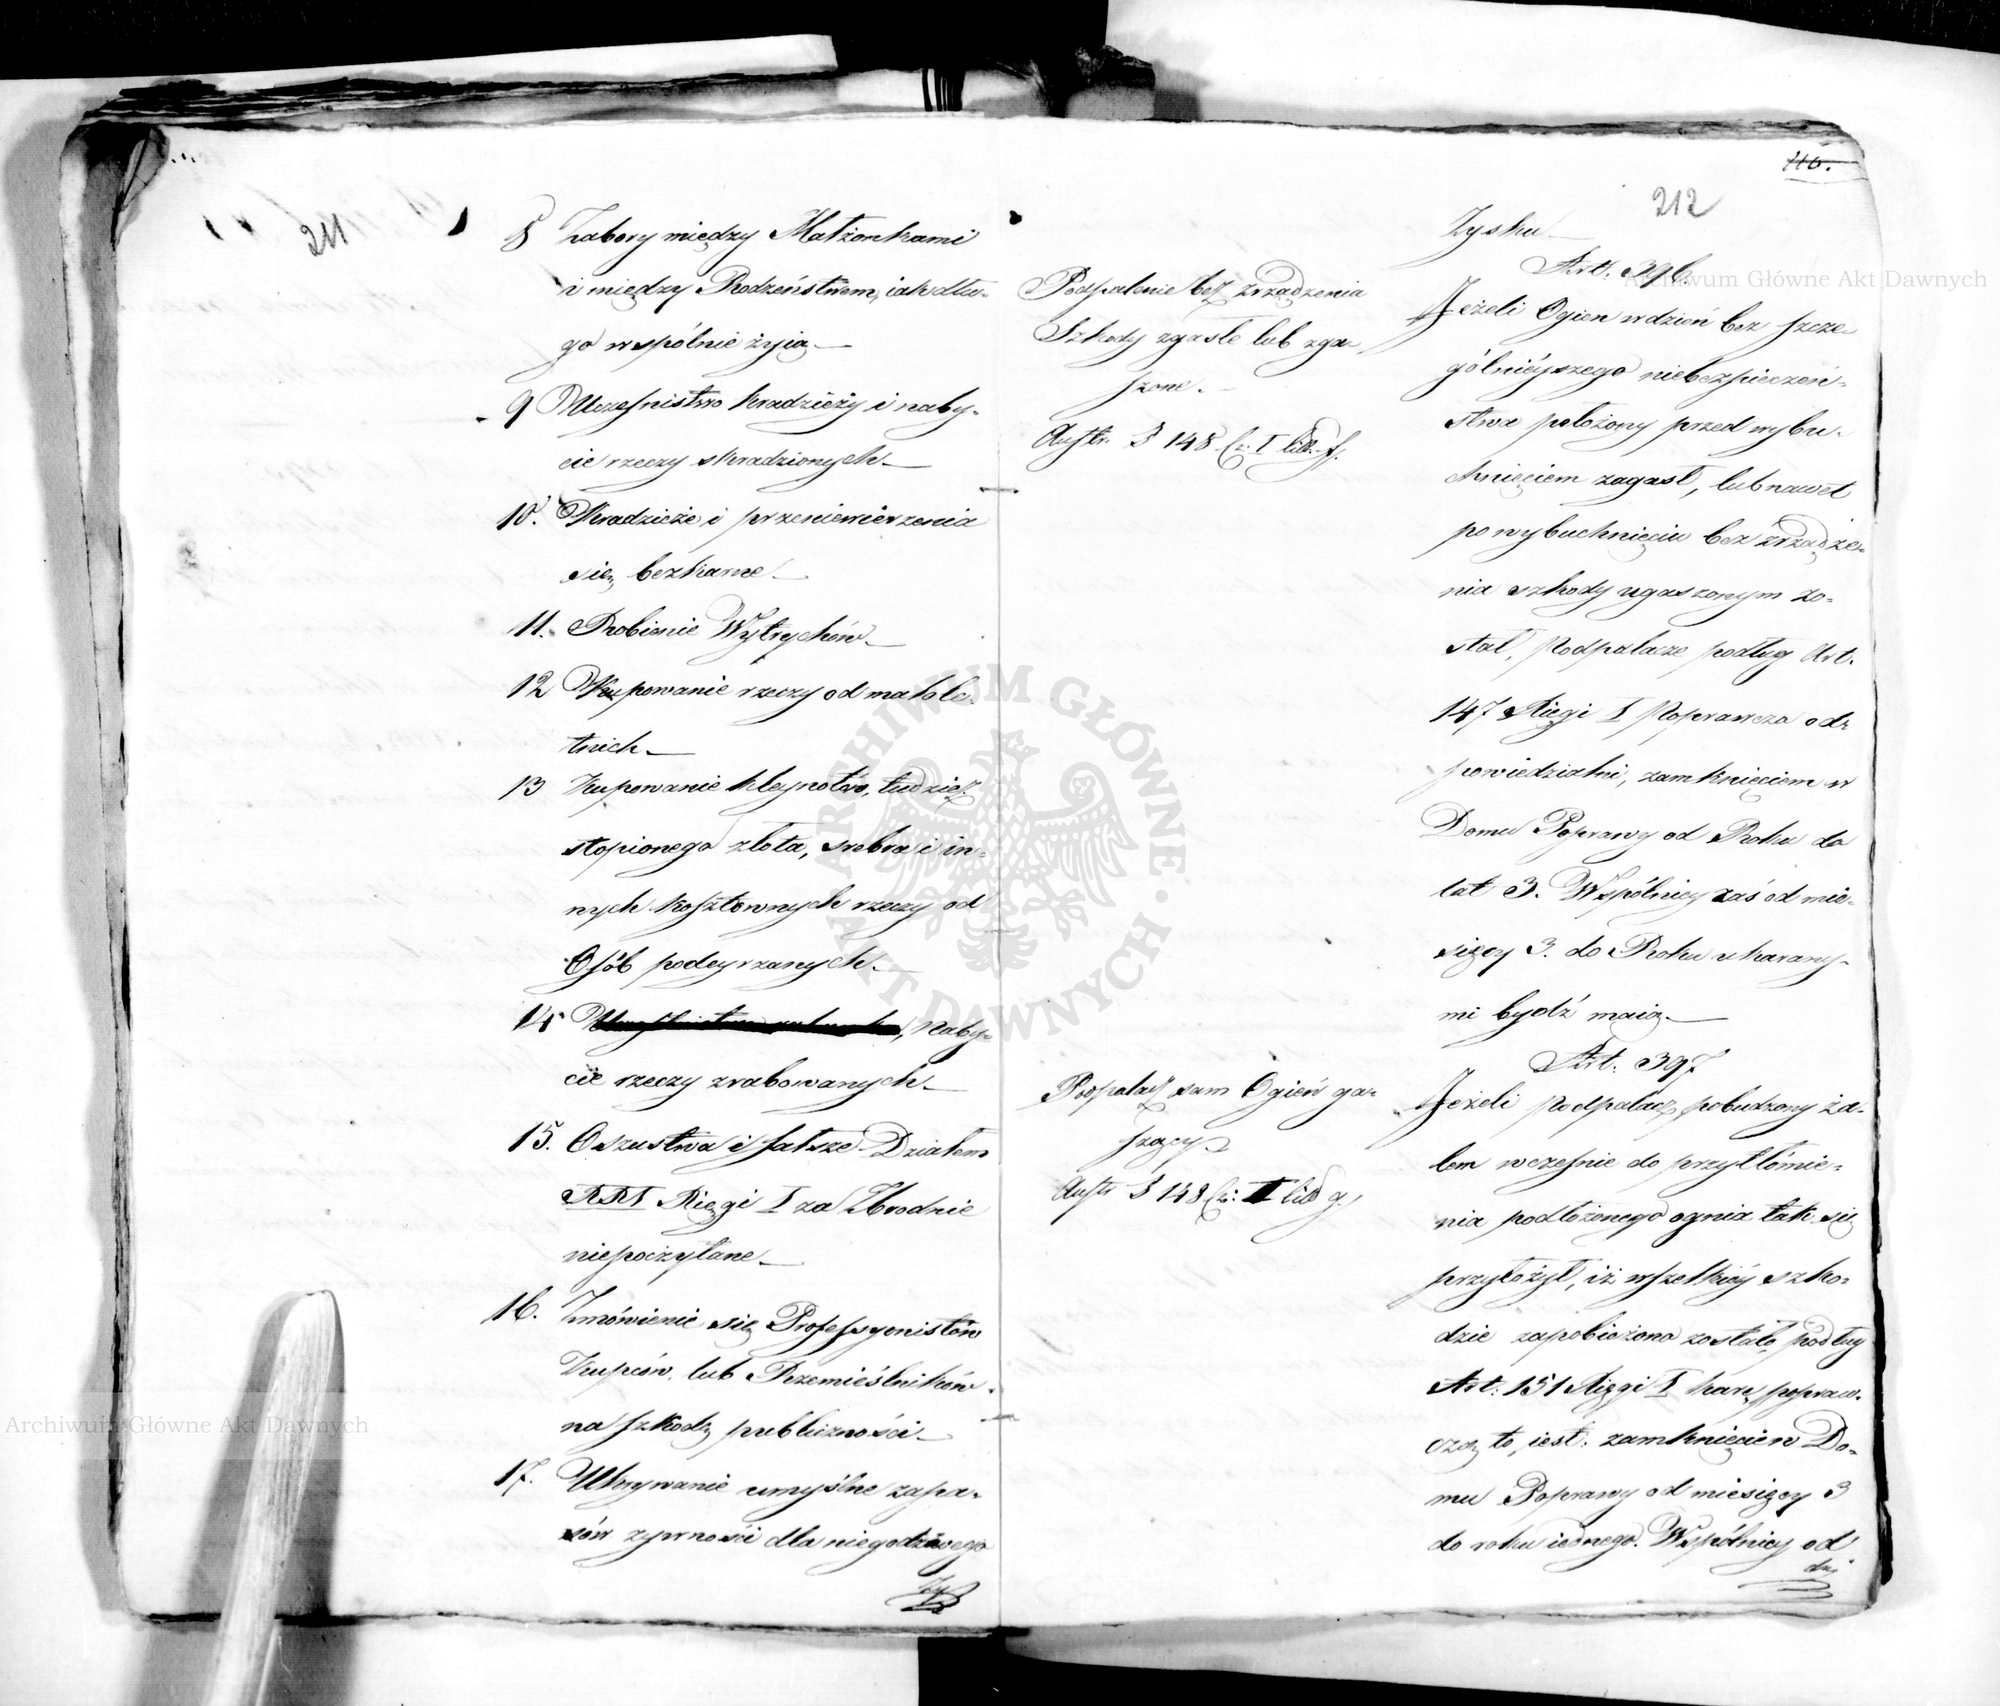 211
8 Zabory między Małżonkami
i między Rodzeństwem, iak dłu-
go wspólnie żyią.
9 Uczesnistwo kradzieży i naby-
cie rzeczy skradzionych.
10. Kradzieże i przeniewierzenia
się, bezkarne.
11. Robienie Wytrychów.
12 Kupowanie rzeczy od małole-
tnich.
13 Kupowanie kleynotów, tudzież
stopionego złota, srebra i in-
nych kosztownych rzeczy od
Osób podeyrzanych.
14 Naby-
cie rzeczy zrabowanych.
15. Oszustwa i fałsze Działem
Xięgi I za Zbrodnie
niepoczytane.
16. Zmówienie się Professyonistów
Kupców, lub Rzemieślników
na szkodę publiczności.
17. Ukrywanie umyślne zapa-
sów żywności dla niegodziwego
Zy
116.
212
Zysku.
Art. 396.
Podpalenie bez zrządzenia
Szkody zgasłe lub zga-
szone.
Austr. § 148 Cz: I litt. f.
Jeżeli Ogien w dzień bez szcze-
gólnieyszego niebezpieczeń-
stwa położony przed wybu-
chnięciem zagasł, lub nawet
po wybuchnięciu bez zrządze-
nia szkody ugaszonym zo-
stał, Podpalacze podług Art.
147 Xięgi I Poprawcza od-
powiedzialni, zamknięciem w
Domu Poprawy od Roku do
lat 3. Wspólnicy zaś od mie-
sięcy 3. do Roku ukarany-
mi bydź maią.
Art. 397
Podpalacz sam Ogień ga-
szący
Austr § 148 Cz: I litt g.
Jeżeli Podpalacz, pobudzony ża-
lem wcześnie do przytłómie-
nia podłożonego ognia tak się
przyłożył, iż wszelkiéy szko-
dzie zapobieżono zostało, podług
Art. 151 Xięgi I karę popraw-
czą, to, iest: zamknięcie w Do-
mu Poprawy od miesięcy 3
do roku iednego. Wspólnicy od
dni
Archiwum Główne Akt Dawnych
ARCHIWUM GŁÓWNE · AKT DAWNYCH ·
Archiwum Główne Akt Dawnych